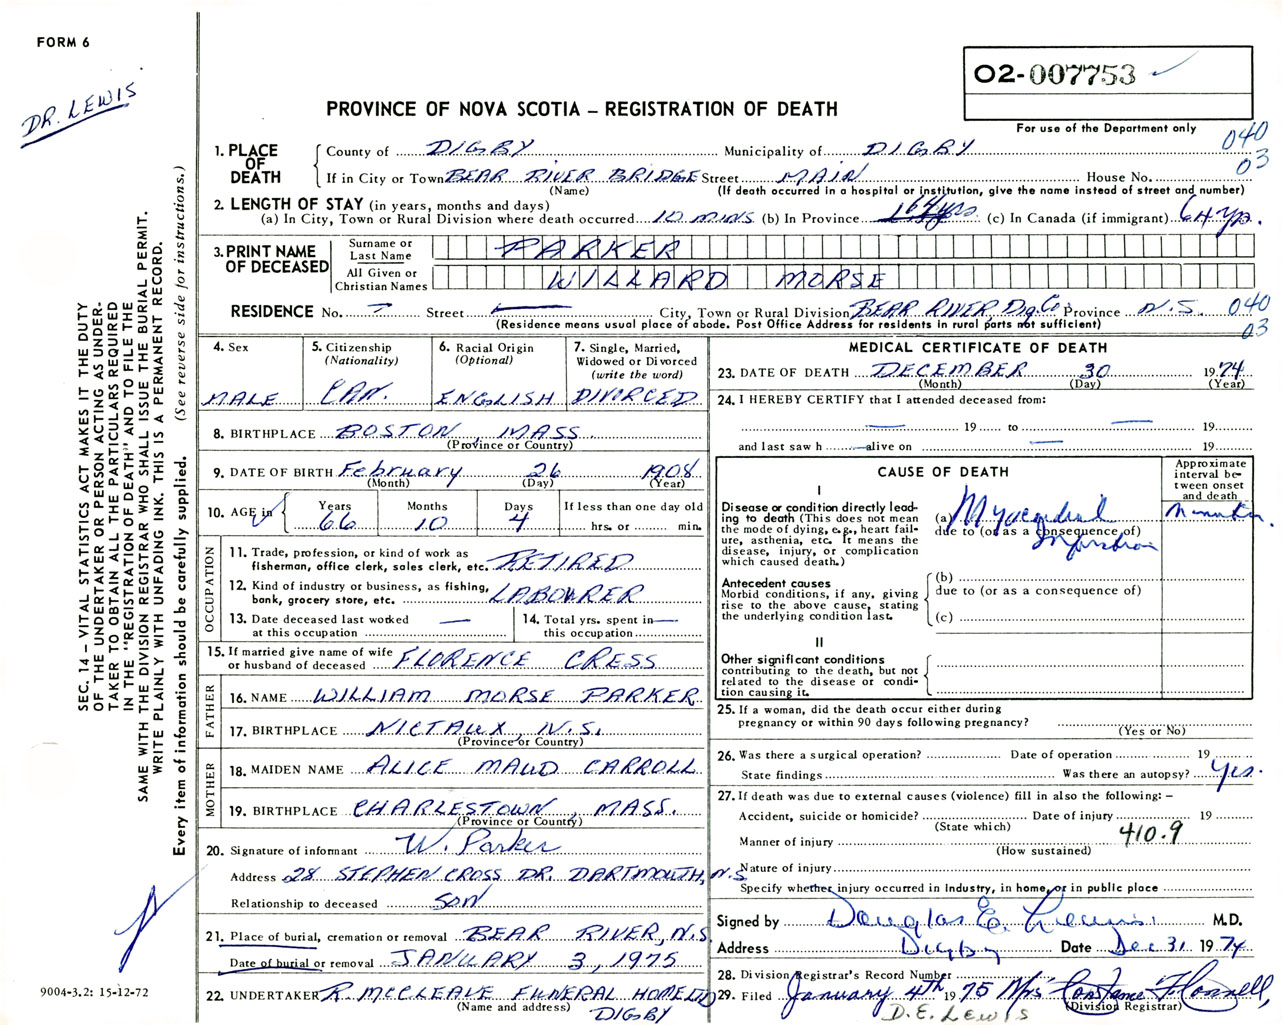 FORM 6
DR. LEWIS
02-007753
PROVINCE OF NOVA SCOTIA – REGISTRATION OF DEATH
For use of the Department only
040
03
1. PLACE OF DEATH
County of DIGBY Municipality of DIGBY
If in City or Town BEAR RIVER BRIDGE Street MAIN House No.
(Name) (If death occurred in a hospital or institution, give the name instead of street and number)
2. LENGTH OF STAY (in years, months and days)
(a) In City, Town or Rural Division where death occurred 10 MINS (b) In Province 64 yrs (c) In Canada (if immigrant) 64 yr.
3. PRINT NAME OF DECEASED
Surname or Last Name PARKER
All Given or Christian Names WILLARD MORSE
RESIDENCE No. – Street City, Town or Rural Division BEAR RIVER, Dig. Co. Province N.S. 040
(Residence means usual place of abode. Post Office Address for residents in rural parts not sufficient) 03
4. Sex
MALE
5. Citizenship
(Nationality)
CAN.
6. Racial Origin
(Optional)
ENGLISH
7. Single, Married,
Widowed or Divorced
(write the word)
DIVORCED
8. BIRTHPLACE BOSTON, MASS.
(Province or Country)
9. DATE OF BIRTH February 26 1908
(Month) (Day) (Year)
10. AGE in Years Months Days If less than one day old
66 10 4 hrs. or min.
OCCUPATION
11. Trade, profession, or kind of work as
fisherman, office clerk, sales clerk, etc. RETIRED
12. Kind of industry or business, as fishing,
bank, grocery store, etc. LABOURER
13. Date deceased last worked
at this occupation —
14. Total yrs. spent in
this occupation —
15. If married give name of wife
or husband of deceased FLORENCE CRESS
FATHER
16. NAME WILLIAM MORSE PARKER
17. BIRTHPLACE NICTAUX, N.S.
(Province or Country)
MOTHER
18. MAIDEN NAME ALICE MAUD CARROLL
19. BIRTHPLACE CHARLESTOWN, MASS.
(Province or Country)
20. Signature of informant W. Parker
Address 28 STEPHEN CROSS DR. DARTMOUTH, N.S
Relationship to deceased SON
21. Place of burial, cremation or removal BEAR RIVER, N.S.
Date of burial or removal JANUARY 3, 1975
22. UNDERTAKER R. MCCLEAVE FUNERAL HOME LTD
(Name and address) DIGBY
MEDICAL CERTIFICATE OF DEATH
23. DATE OF DEATH DECEMBER 30 1974
(Month) (Day) (Year)
24. I HEREBY CERTIFY that I attended deceased from:
— 19 to — 19
and last saw h — alive on — 19
CAUSE OF DEATH
Approximate
interval be-
tween onset
and death
I
Disease or condition directly lead-
ing to death (This does not mean
the mode of dying, e.g., heart fail-
ure, asthenia, etc. It means the
disease, injury, or complication
which caused death.)
(a) Myocardial
due to (or as a consequence of)
Infarction
Antecedent causes
Morbid conditions, if any, giving
rise to the above cause, stating
the underlying condition last.
(b)
due to (or as a consequence of)
(c)
II
Other significant conditions
contributing to the death, but not
related to the disease or condi-
tion causing it.
25. If a woman, did the death occur either during
pregnancy or within 90 days following pregnancy?
(Yes or No)
26. Was there a surgical operation? Date of operation 19
State findings Was there an autopsy? Yes.
27. If death was due to external causes (violence) fill in also the following: –
Accident, suicide or homicide? Date of injury 19
(State which)
Manner of injury 410.9
(How sustained)
Nature of injury
Specify whether injury occurred in industry, in home, or in public place
Signed by Douglas E. Lewis M.D.
Address Digby Date Dec 31 1974
28. Division Registrar's Record Number
29. Filed January 4th 1975 Mrs Constance
(Division Registrar)
D.E. LEWIS
SEC. 14 – VITAL STATISTICS ACT MAKES IT THE DUTY
OF THE UNDERTAKER OR PERSON ACTING AS UNDER-
TAKER TO OBTAIN ALL THE PARTICULARS REQUIRED
IN THE "REGISTRATION OF DEATH" AND TO FILE THE
SAME WITH THE DIVISION REGISTRAR WHO SHALL ISSUE THE BURIAL PERMIT.
WRITE PLAINLY WITH UNFADING INK. THIS IS A PERMANENT RECORD.
Every item of information should be carefully supplied. (See reverse side for instructions.)
9004-3.2: 15-12-72